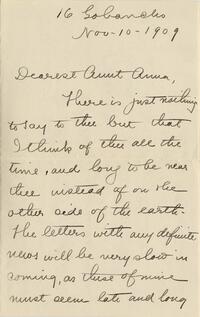 16 Gobancho
Nov-10-1909
Dearest Aunt Anna,
There is just nothing
to say to thee but that
I think of thee all the
time, and long to be near
thee instead of on the
other side of the earth.
The letters with any definite
news will be very slow in
coming, as these of mine
must seem late and long